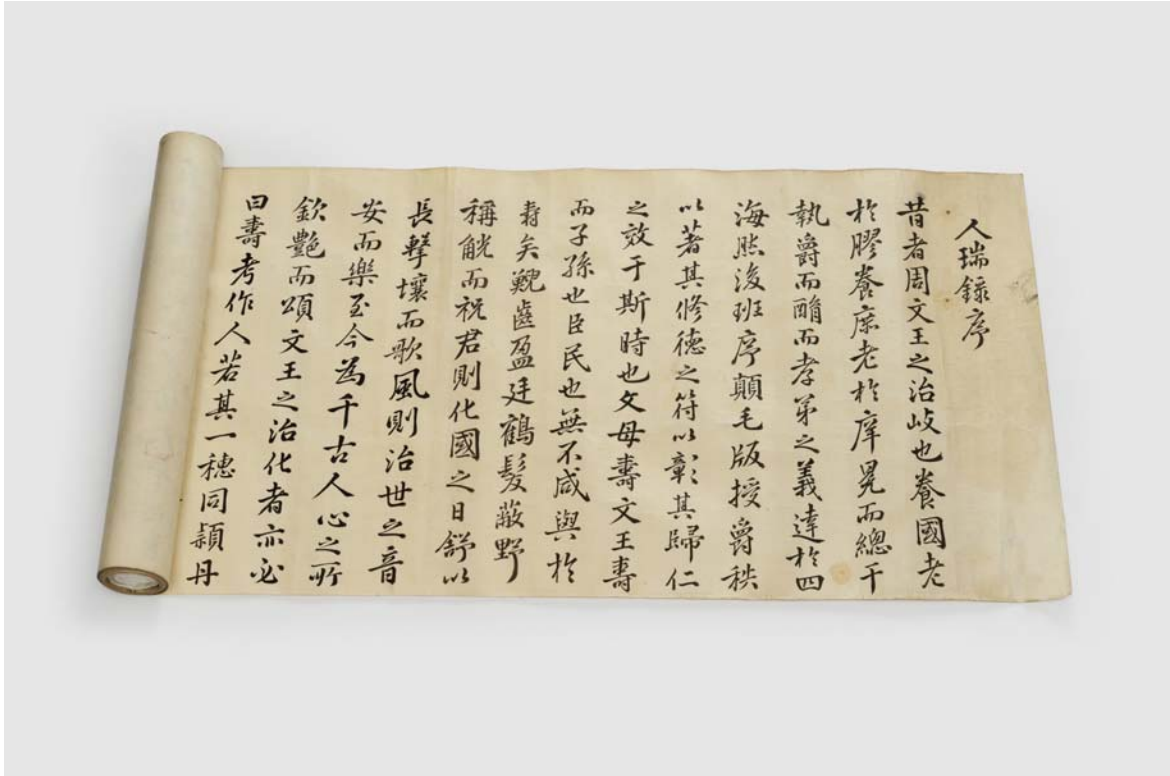 人瑞錄序
昔者周文王之治岐也養國老
於膠養庶老於庠冕而總干
執爵而酳而孝弟之義達於四
海然後班序顛毛版授爵秩
以著其修德之符以彰其歸仁
之效于斯時也文母壽文王壽
而子孫也臣民也無不咸與於
壽矣鯢齒盈廷鶴髮蔽野
稱觥而祝君則化國之日舒以
長擊壤而歌風則治世之音
安而樂至今為千古人心之所
欽艷而頌文王之治化者亦必
曰壽考作人若其一穗同穎丹